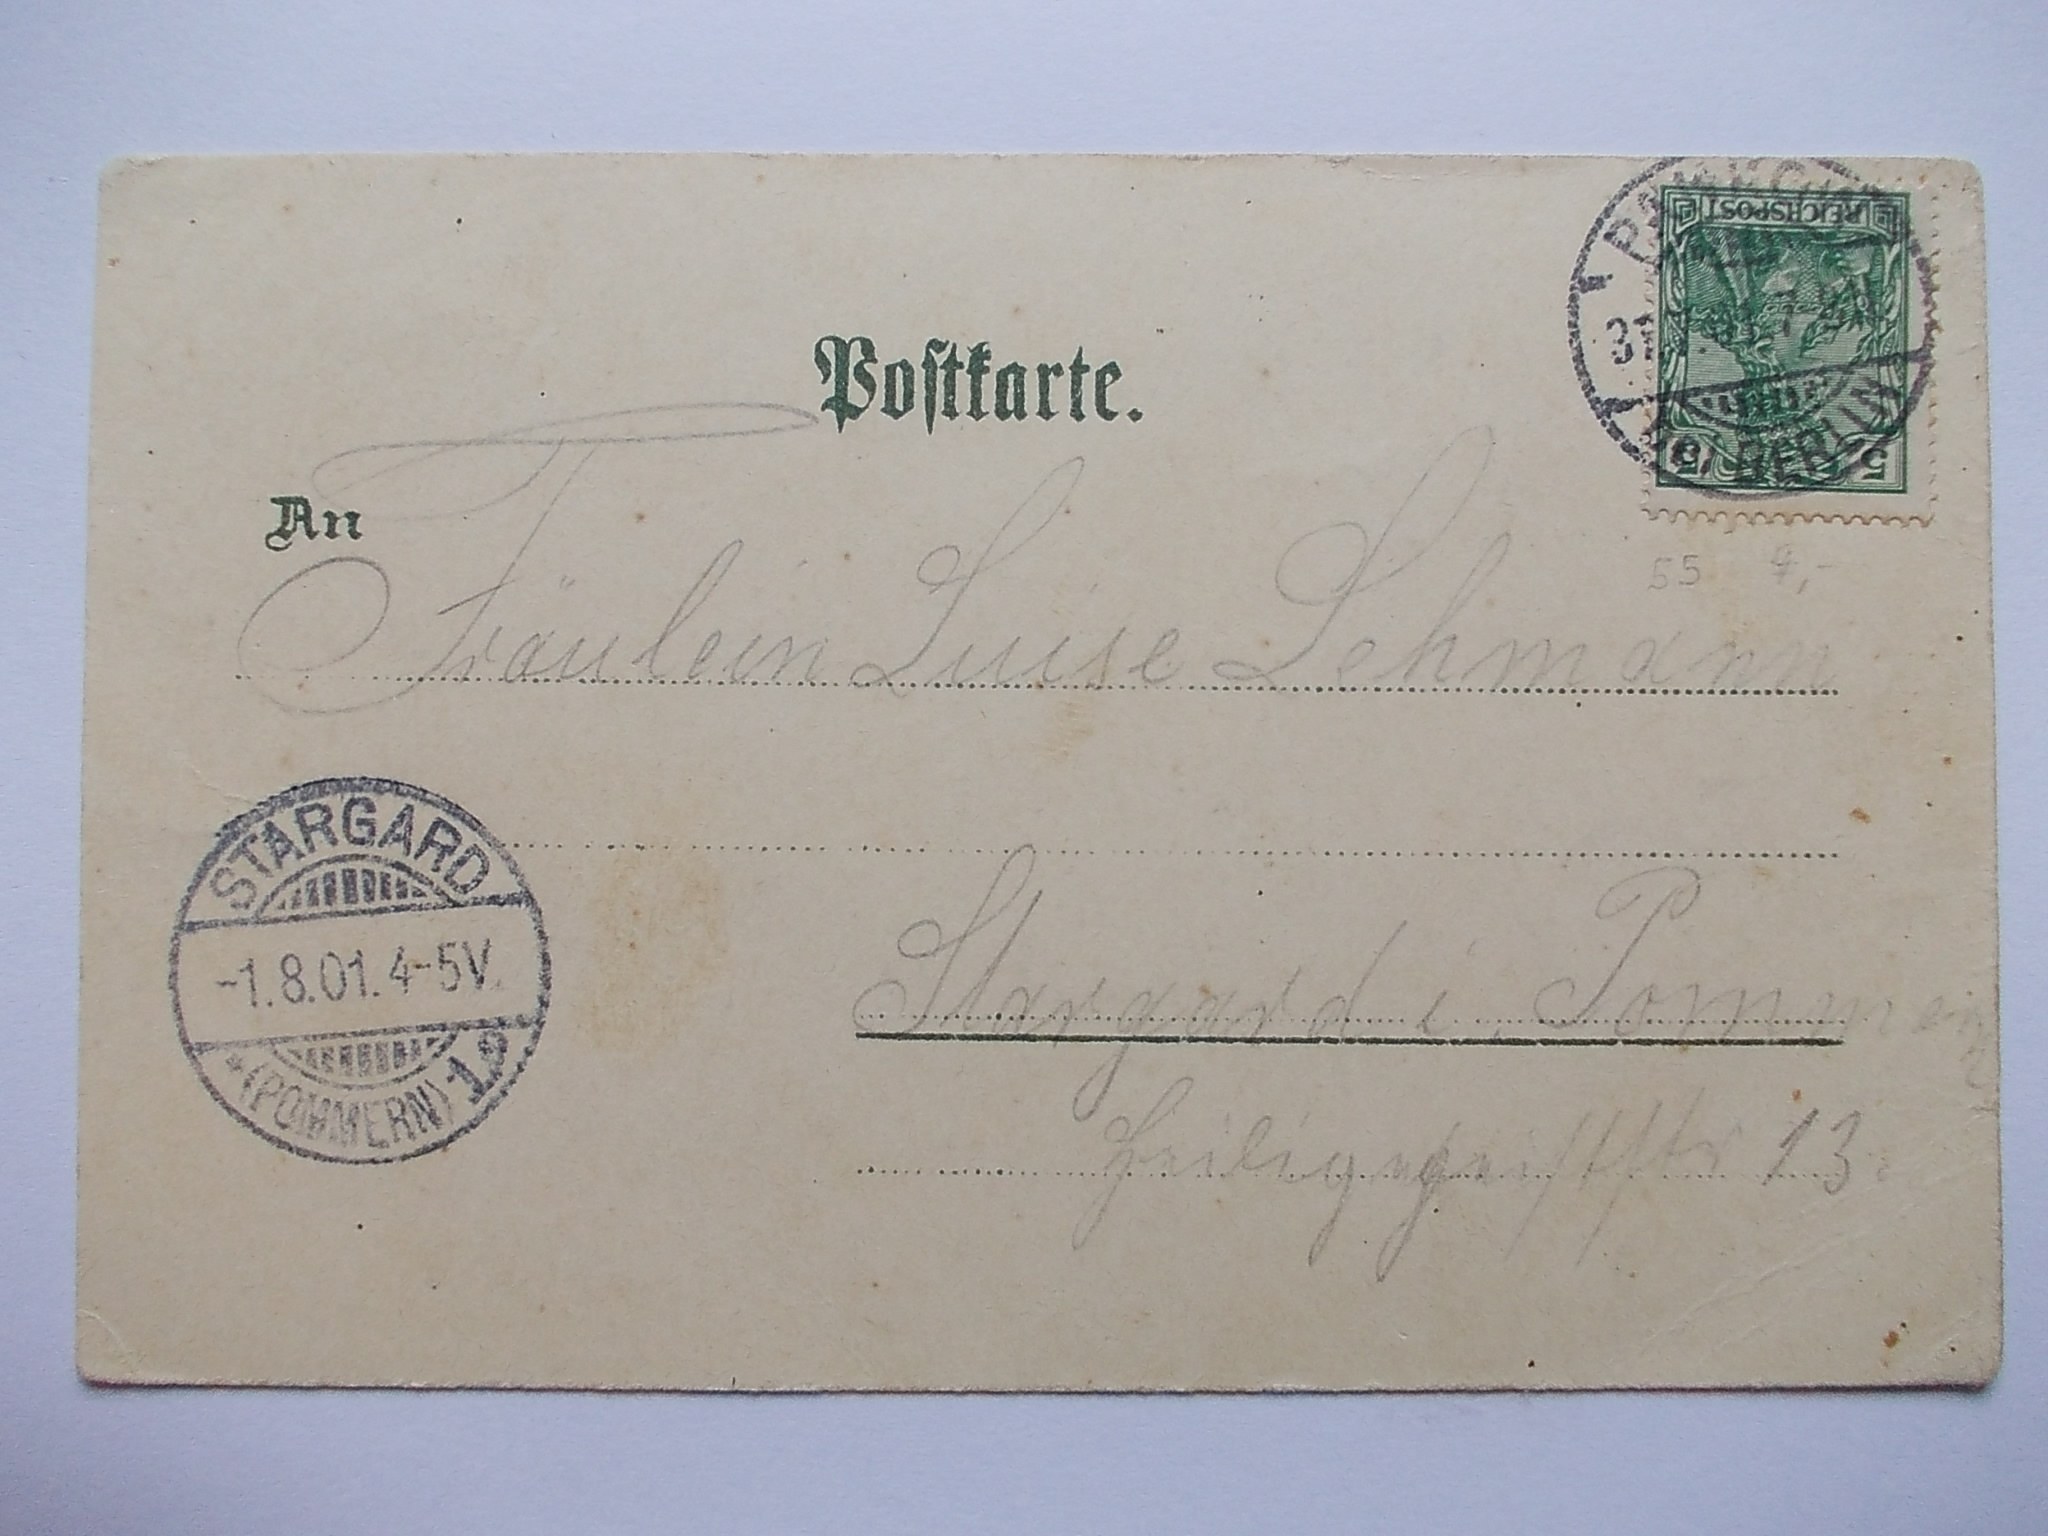 Postkarte.
REICHSPOST
5 5
BERLIN
31
An
Fräulein Luise Lehmann
55 4,-
STARGARD
-1.8.01.4-5V.
*(POMMERN)1.
Stargard i. Pommern
Heiligegeiststr 13.